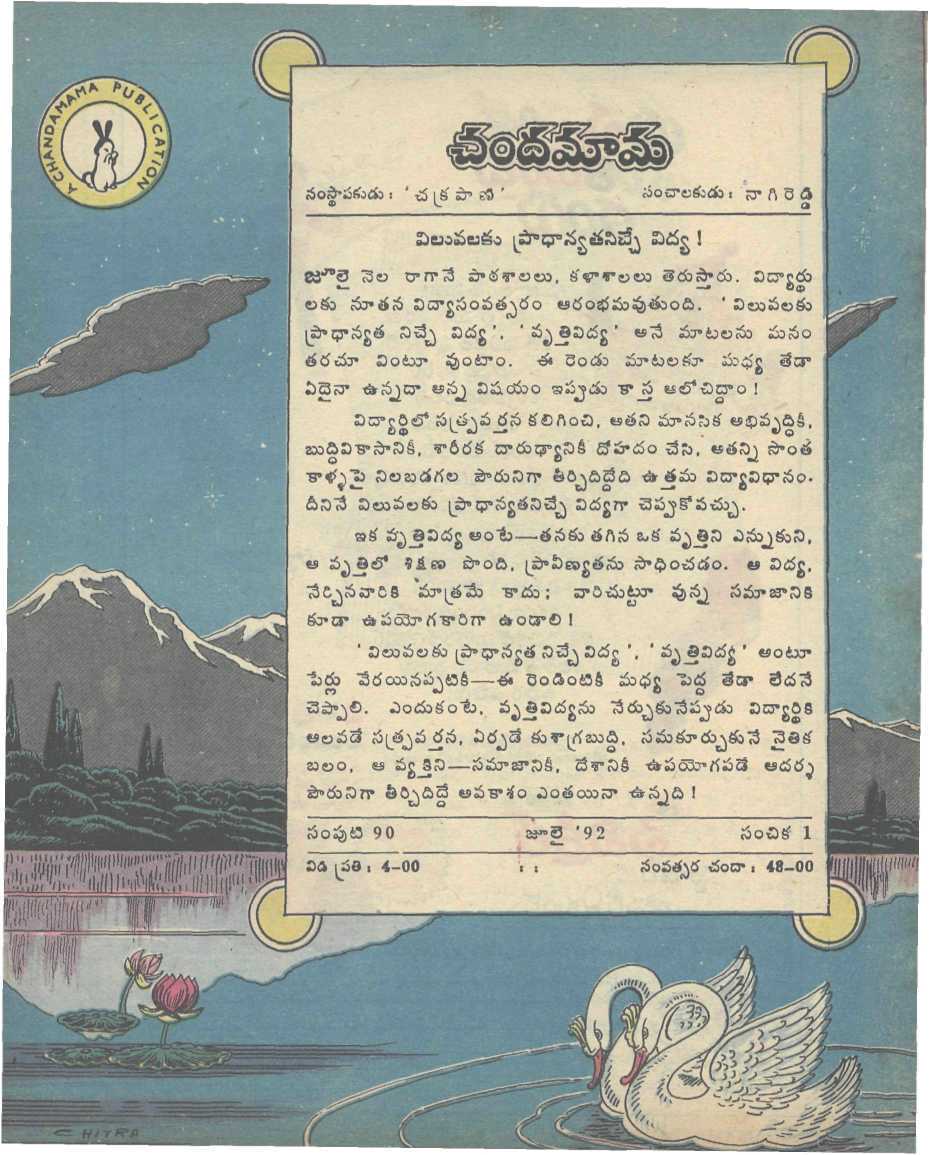 A CHANDAMAMA PUBLICATION
చందమామ
సంస్థాపకుడు : ' చక్రపాణి '
సంచాలకుడు : నాగిరెడ్డి
విలువలకు ప్రాధాన్యతనిచ్చే విద్య !
జూలై నెల రాగానే పాఠశాలలు, కళాశాలలు తెరుస్తారు. విద్యార్థు
లకు నూతన విద్యాసంవత్సరం ఆరంభమవుతుంది. ' విలువలకు
ప్రాధాన్యత నిచ్చే విద్య ', ' వృత్తివిద్య ' అనే మాటలను మనం
తరచూ వింటూ వుంటాం. ఈ రెండు మాటలకూ మధ్య తేడా
ఏదైనా ఉన్నదా అన్న విషయం ఇప్పుడు కాస్త ఆలోచిద్దాం !
విద్యార్థిలో సత్ప్రవర్తన కలిగించి, అతని మానసిక అభివృద్ధికీ,
బుద్ధివికాసానికీ, శారీరక దారుఢ్యానికీ దోహదం చేసి, అతన్ని సొంత
కాళ్ళపై నిలబడగల పౌరునిగా తీర్చిదిద్దేది ఉత్తమ విద్యావిధానం.
దీనినే విలువలకు ప్రాధాన్యతనిచ్చే విద్యగా చెప్పుకోవచ్చు.
ఇక వృత్తివిద్య అంటే—తనకు తగిన ఒక వృత్తిని ఎన్నుకుని,
ఆ వృత్తిలో శిక్షణ పొంది, ప్రావీణ్యతను సాధించడం. ఆ విద్య,
నేర్చినవారికి మాత్రమే కాదు ; వారిచుట్టూ వున్న సమాజానికి
కూడా ఉపయోగకారిగా ఉండాలి !
' విలువలకు ప్రాధాన్యత నిచ్చే విద్య ', ' వృత్తివిద్య ' అంటూ
పేర్లు వేరయినప్పటికీ—ఈ రెండింటికీ మధ్య పెద్ద తేడా లేదనే
చెప్పాలి. ఎందుకంటే, వృత్తివిద్యను నేర్చుకునేప్పుడు విద్యార్థికి
అలవడే సత్ప్రవర్తన, ఏర్పడే కుశాగ్రబుద్ధి, సమకూర్చుకునే నైతిక
బలం, ఆ వ్యక్తిని—సమాజానికీ, దేశానికీ ఉపయోగపడే ఆదర్శ
పౌరునిగా తీర్చిదిద్దే అవకాశం ఎంతయినా ఉన్నది !
సంపుటి 90 జూలై '92 సంచిక 1
విడి ప్రతి : 4-00 : : సంవత్సర చందా : 48-00
CHITRA